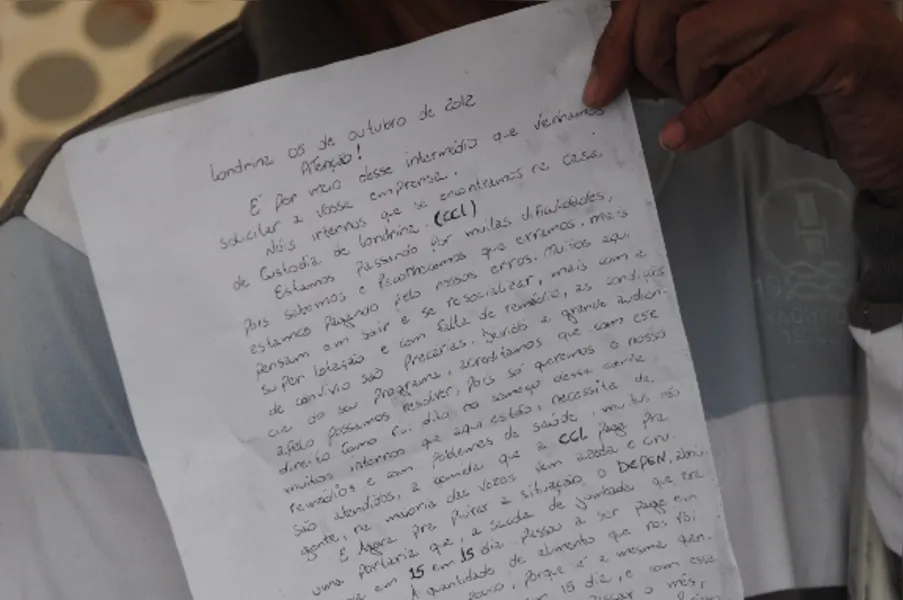 Londrina 05 de outubro de 2012
Atenção!
É por meio desse intermédio que venhamos
solicitar a vossa emprensa.
Nóis internos que se encontramos na casa
de Custodia de Londrina. (CCL)
Estamos Passando por muitas dificuldades,
Pois sabemos e Reconhecemos que erramos, mais
estamos Pagando pelo nossos erros. Muitos aqui
Pensam em sair e se resocializar, mais com a
super lotação e com falta de remédio, as condição
de convívio são Precárias. a grande audiên-
cia do seu Programa, acreditamos que com esse
apelo possamos resolver, Pois só queremos o nosso
direito Como foi dito no começo dessa
muitos internos que aqui estão, necessita de
remédios e com Poblemas de saúde, muitos não
são atendidos, a comida que a CCL Paga pra
gente, na maioria das vezes vem azeda e cru.
E Agora pra Piorar a situação o DEPEN,
uma Portaria que, a sacola de que era
em 15 em 15 dia Passou a ser em
A quantidade de alimento que nos foi
Pouco, Porque é a mesma quan-
15 dia, e com esse
o mês,